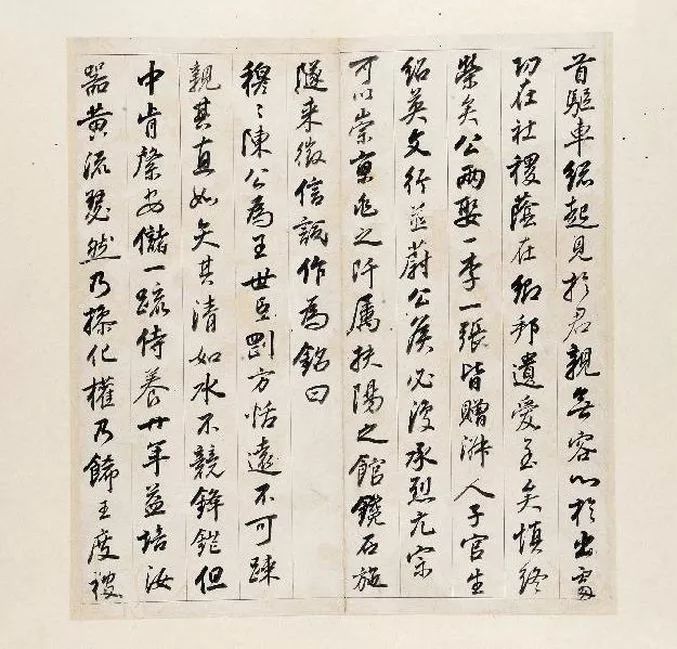 首驅車總起見於君親無容心於出處
功在社稷蔭在鄉邦遺愛至矣慎終
榮矣公兩娶一李一張皆贈淑人子官生
紹英文行並蔚公侯必復承烈亢宗
可以崇之阡屬扶陽之館鐫石施
隧来徵信試作為銘曰
穆々陳公為王世臣剛方恬遠不可踈
親其直如矢其清如水不競鋒鋩但
中肯綮安儲一疏侍養廿年益培汝
器黄流瑟然乃操化權乃飾王度